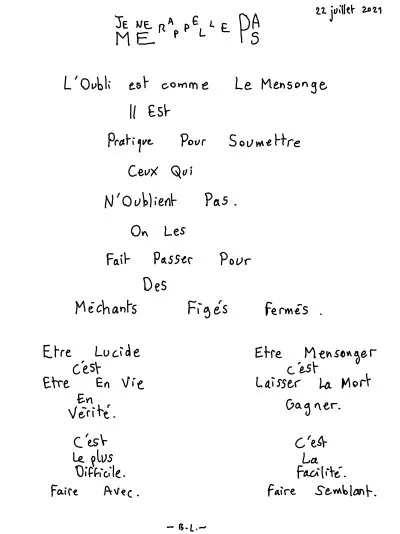 22 juillet 2021
JE NE ME RAPPELLE PAS
L'Oubli est comme Le Mensonge
Il Est
Pratique Pour Soumettre
Ceux Qui
N'Oublient Pas.
On Les
Fait Passer Pour
Des
Méchants Figés Fermés.
Etre Lucide
c'est
Etre En Vie
En
Vérité.
C'est
Le plus
Difficile.
Faire Avec.
Etre Mensonger
c'est
Laisser La Mort
Gagner.
C'est
La
Facilité.
Faire Semblant.
- B.L. -